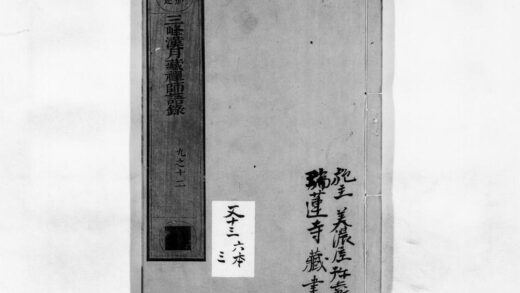 三峰漢月藏禪師語錄
九之十二
施主 美濃屋
瑞蓮寺藏書
又十三
六本
三